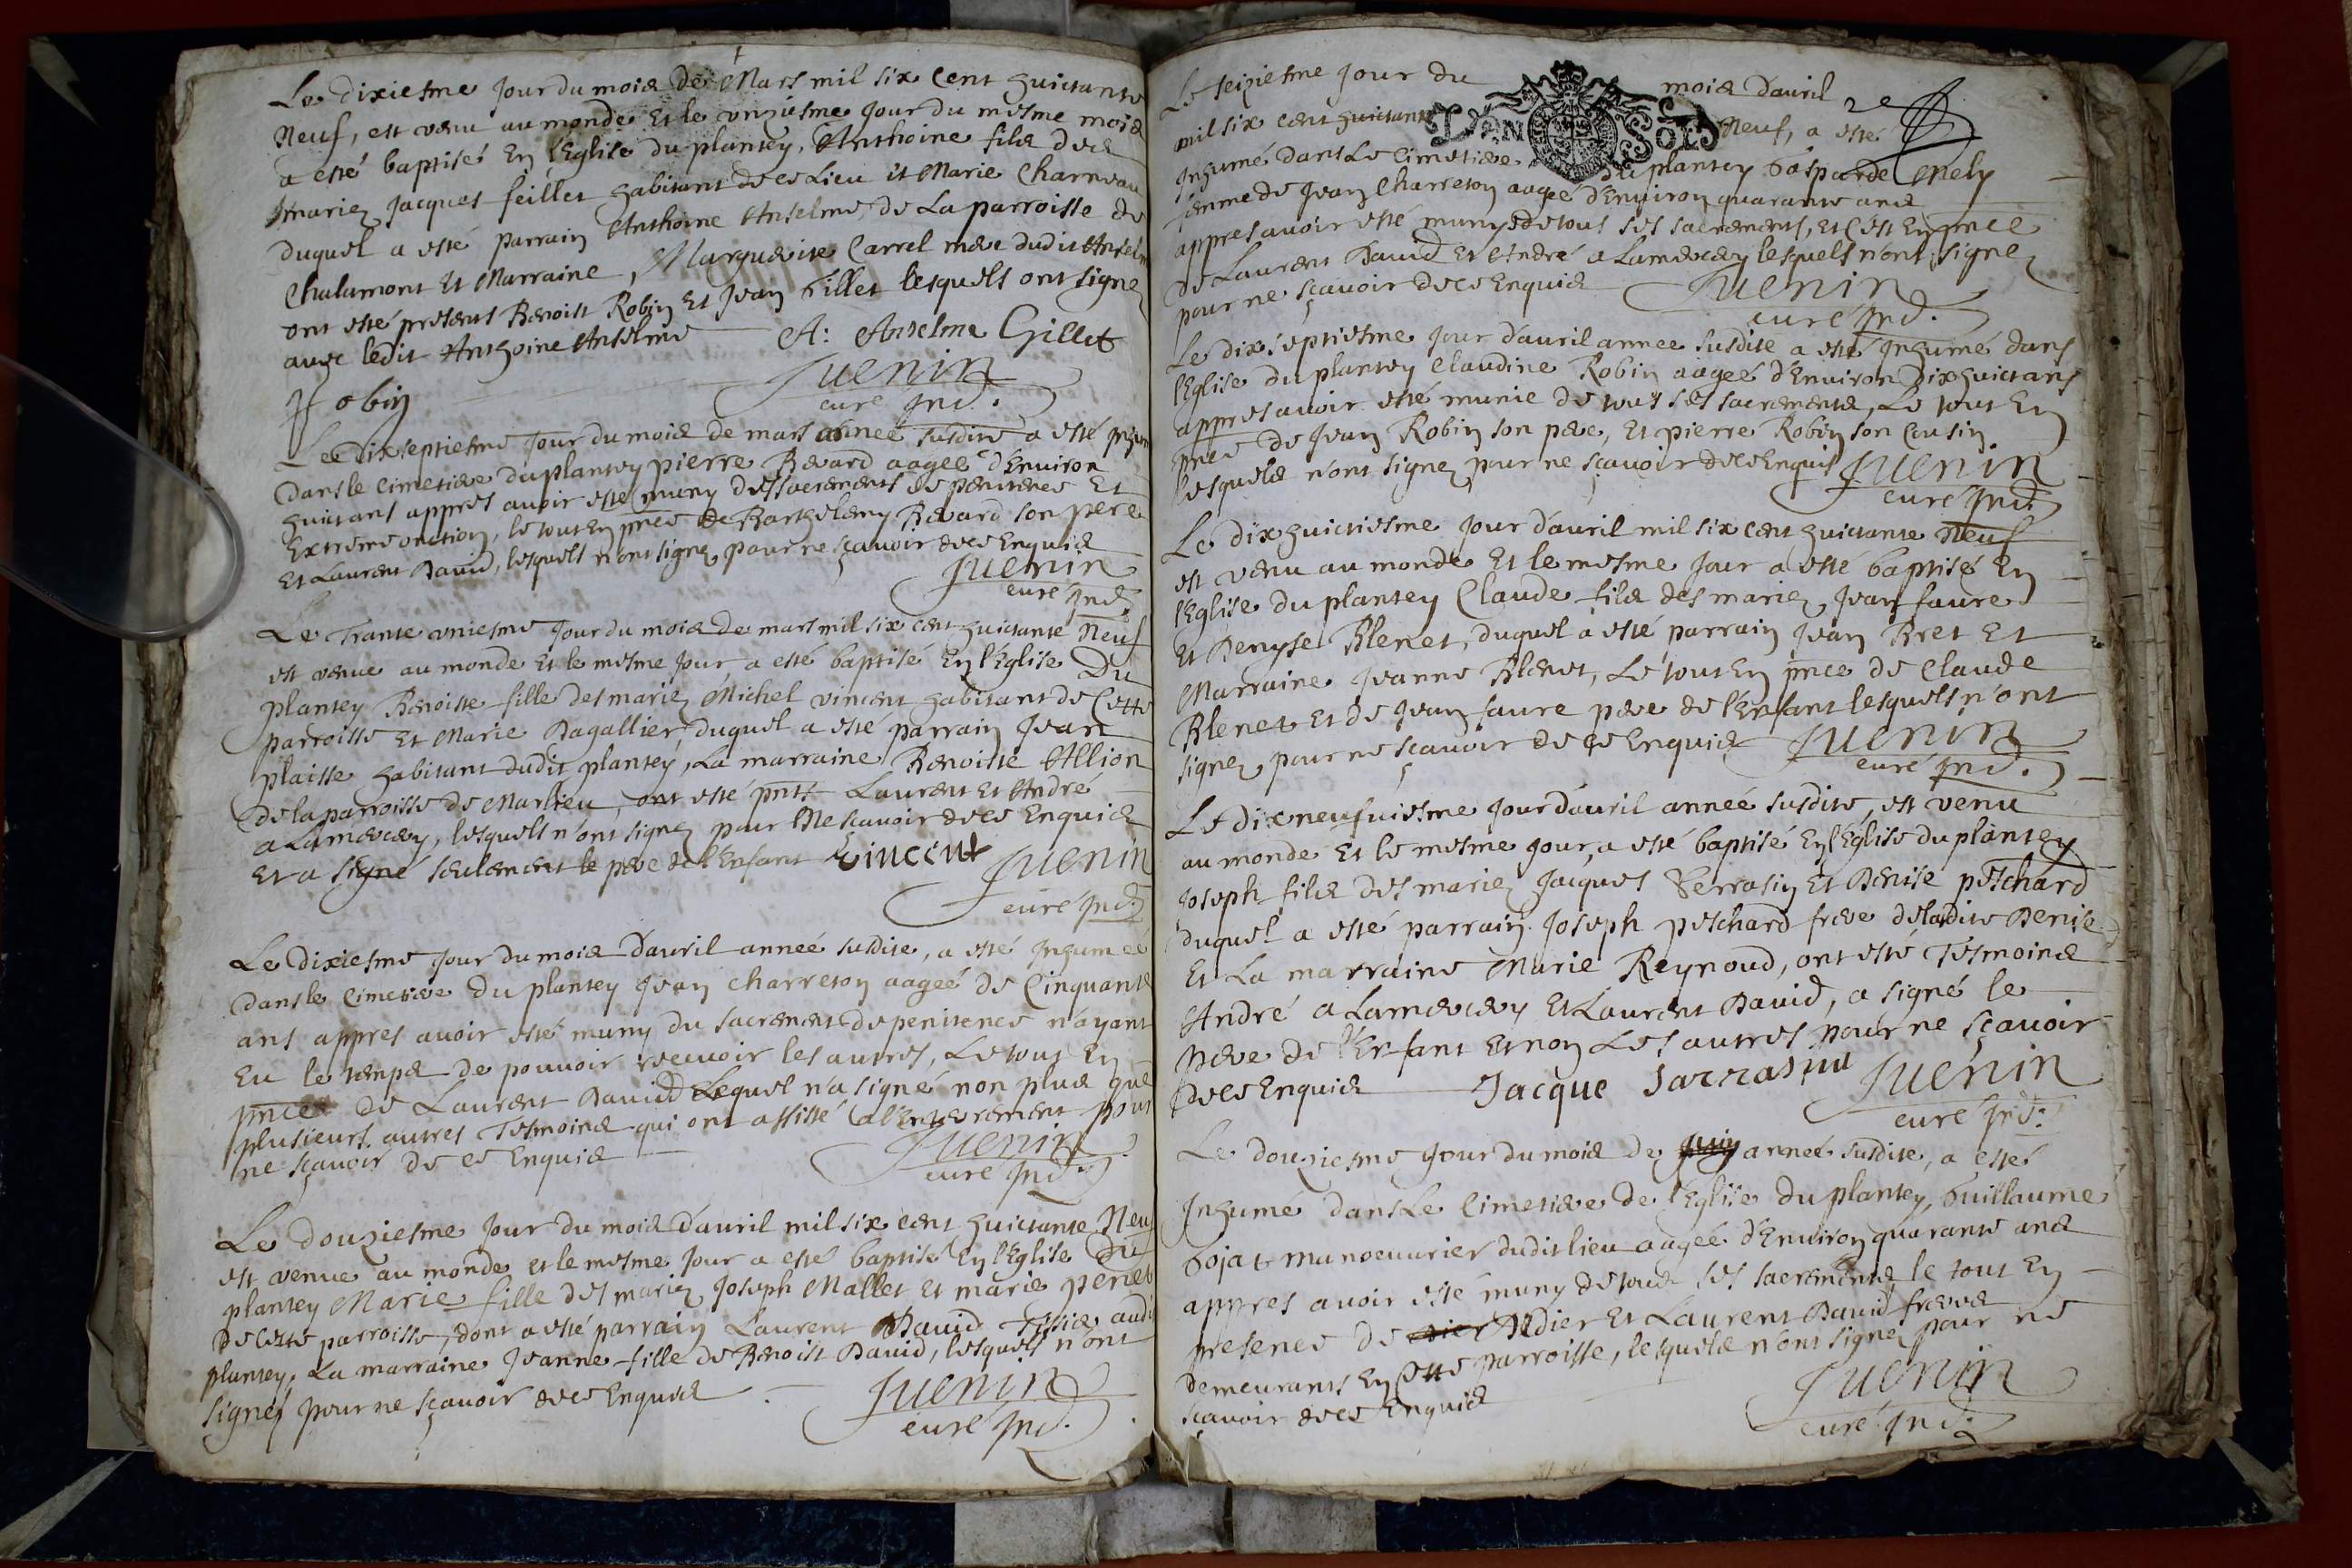 Le dixiesme jour du mois de Mars mil six cent huictante
Neuf, est venu au monde et le unziesme jour du mesme mois
a esté baptisé en l'Eglise du plantey, Anthoine fils des
mariez Jacques feillet habitant de ce Lieu et Marie Charneau
duquel a esté parrain Anthoine Anselme, de La parroisse de
Chalamont et Marraine, Marguerite Carrel mere dudit Anselme
ont esté present Benoist Robin et Jean Gillet lesquels ont signez
avec ledit Anthoine Anselme A: Anselme Gillet
obin Juenin
curé ind.
Le Dixseptiesme Jour du mois de mars année susdite a esté inhumé
dans le cimetiere du plantey pierre Bevard aagee d'Environ
huictans appres avoir esté muny des sacrements de penitence Et
Extreme onction, le tout en pnce de Barthelemy Bevard son pere
Et Laurent David, lesquels n'ont signez pour ne sçavoir de ce Enquis
Juenin
curé ind.
Le Trante uniesme Jour du mois de mars mil six cent huictante Neuf
est venue au monde et le mesme jour a esté baptisé En l'Eglise Du
plantey Benoiste fille des mariez Michel vincent habitant de Cette
parroisse Et Marie Dagallier, duquel a esté parrain Jean
plaisse habitant dudit plantey, La marraine Benoiste Allion
de la parroisse de Marlieu, ont esté pnts Laurent Et André
a Lamercery, lesquels n'ont signez pour Ne scavoir de ce Enquis
Et a signé seulement le pere de l'Enfant Vincent Juenin
curé ind.
Le dixiesme Jour du mois d'avril année susdite, a esté inhumeé
dans le Cimetiere Du plantey Jean Charreton aageé de Cinquante
ans appres avoir esté muny du sacrement de penitence n'ayant
Eu le temps de pouvoir recevoir les autres, Le tout En
pnce de Laurent David Lequel n'a signé non plus que
plusieurs autres Tesmoins qui ont assisté a l'Enterrement pour
ne sçavoir de ce Enquis Juenin
curé ind.
Le douziesme Jour du mois d'avril mil six cent huictante Neuf
est venue au monde et le mesme Jour a esté baptisé En l'Eglise du
plantey Marie fille des mariez Joseph Mallet Et marie penet
De Cette parroisse, dont a esté parrain Laurent David Tissier audit
plantey, La marraine Jeanne fille de Benoist David, lesquels n'ont
signés pour ne sçavoir de ce Enquis Juenin
curé ind.
Le seiziesme Jour du mois d'avril 2e
mil six cent huictante Neuf, a esté
Inhumé dans Le cimetiere du plantey Gasparde Mely
femme de Jean Charreton aagee d'Environ quarante ans
appres avoir esté muny de tous ses sacrements, et C'est En pnce
de Laurent David Et André a Lamercery lesquels n'ont signez
pour ne sçavoir de ce Enquis Juenin
curé ind.
Le dixseptiesme Jour d'avril annee susdite a esté Inhumé dans
l'Eglise du plantey Claudine Robin aageé d'Environ Dixhuictans
appres avoir esté munie de tous ses sacrements, Le tout En
pnce de Jean Robin son pere, Et pierre Robin son Cousin
lesquels n'ont signez pour ne sçavoir de ce Enquis Juenin
curé ind.
Le dixhuictiesme Jour d'avril mil six cent huictante Neuf
est venu au monde Et le mesme Jour a esté baptisé En
l'Eglise du plantey Claude fils des mariez Jean faure
Et Denyse Blenet, duquel a esté parrain Jean Bret Et
Marraine Jeanne Blenet, Le tout En pnce de Claude
Blenet Et de Jean faure pere de l'Enfant lesquels n'ont
signez pour ne sçavoir de ce Enquis Juenin
curé ind.
Le dixneufuiesme Jour d'avril anneé susdite, est venu
au monde Et le mesme jour, a esté baptisé En l'Eglise du plantey
Joseph fils des mariez Jacques Serrasin Et Denise peschard
duquel a esté parrain Joseph peschard frere de ladite Denise
Et La marraine Marie Reynoud, ont esté Tesmoins
André a Lamercery Et Laurent David, a signé le
pere de l'Enfant Et non Les autres pour ne sçavoir
de ce Enquis Jacque Sarrasin Juenin
curé ind.
Le douziesme Jour du mois de annee susdite, a esté
Inhumé dans Le Cimetiere de l'Eglise du plantey, Guillaume
Gojat manoeuvrier dudit lieu aageé d'Environ quarante ans
appres avoir esté muny de tous ses sacrements le tout En
presence de Didier Et Laurent David freres
demeurants En Cette parroisse, lesquels n'ont signez pour ne
sçavoir de ce Enquis Juenin
curé ind.